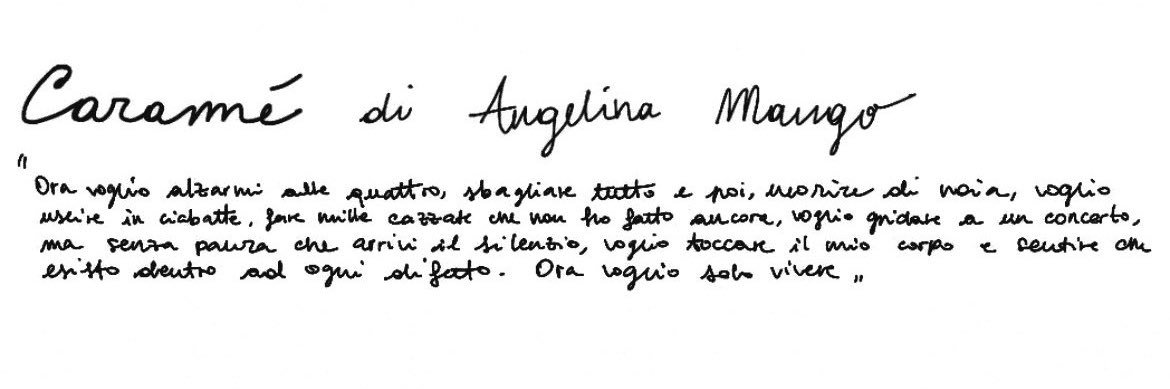 Caramé di Angelina Mango
"Ora voglio alzarmi alle quattro, sbagliare tutto e poi, morire di noia, voglio
uscire in ciabatte, fare mille cazzate che non ho fatto ancora, voglio gridare a un concerto,
ma senza paura che arrivi il silenzio, voglio toccare il mio corpo e sentire che
esisto dentro ad ogni difetto. Ora voglio solo vivere"